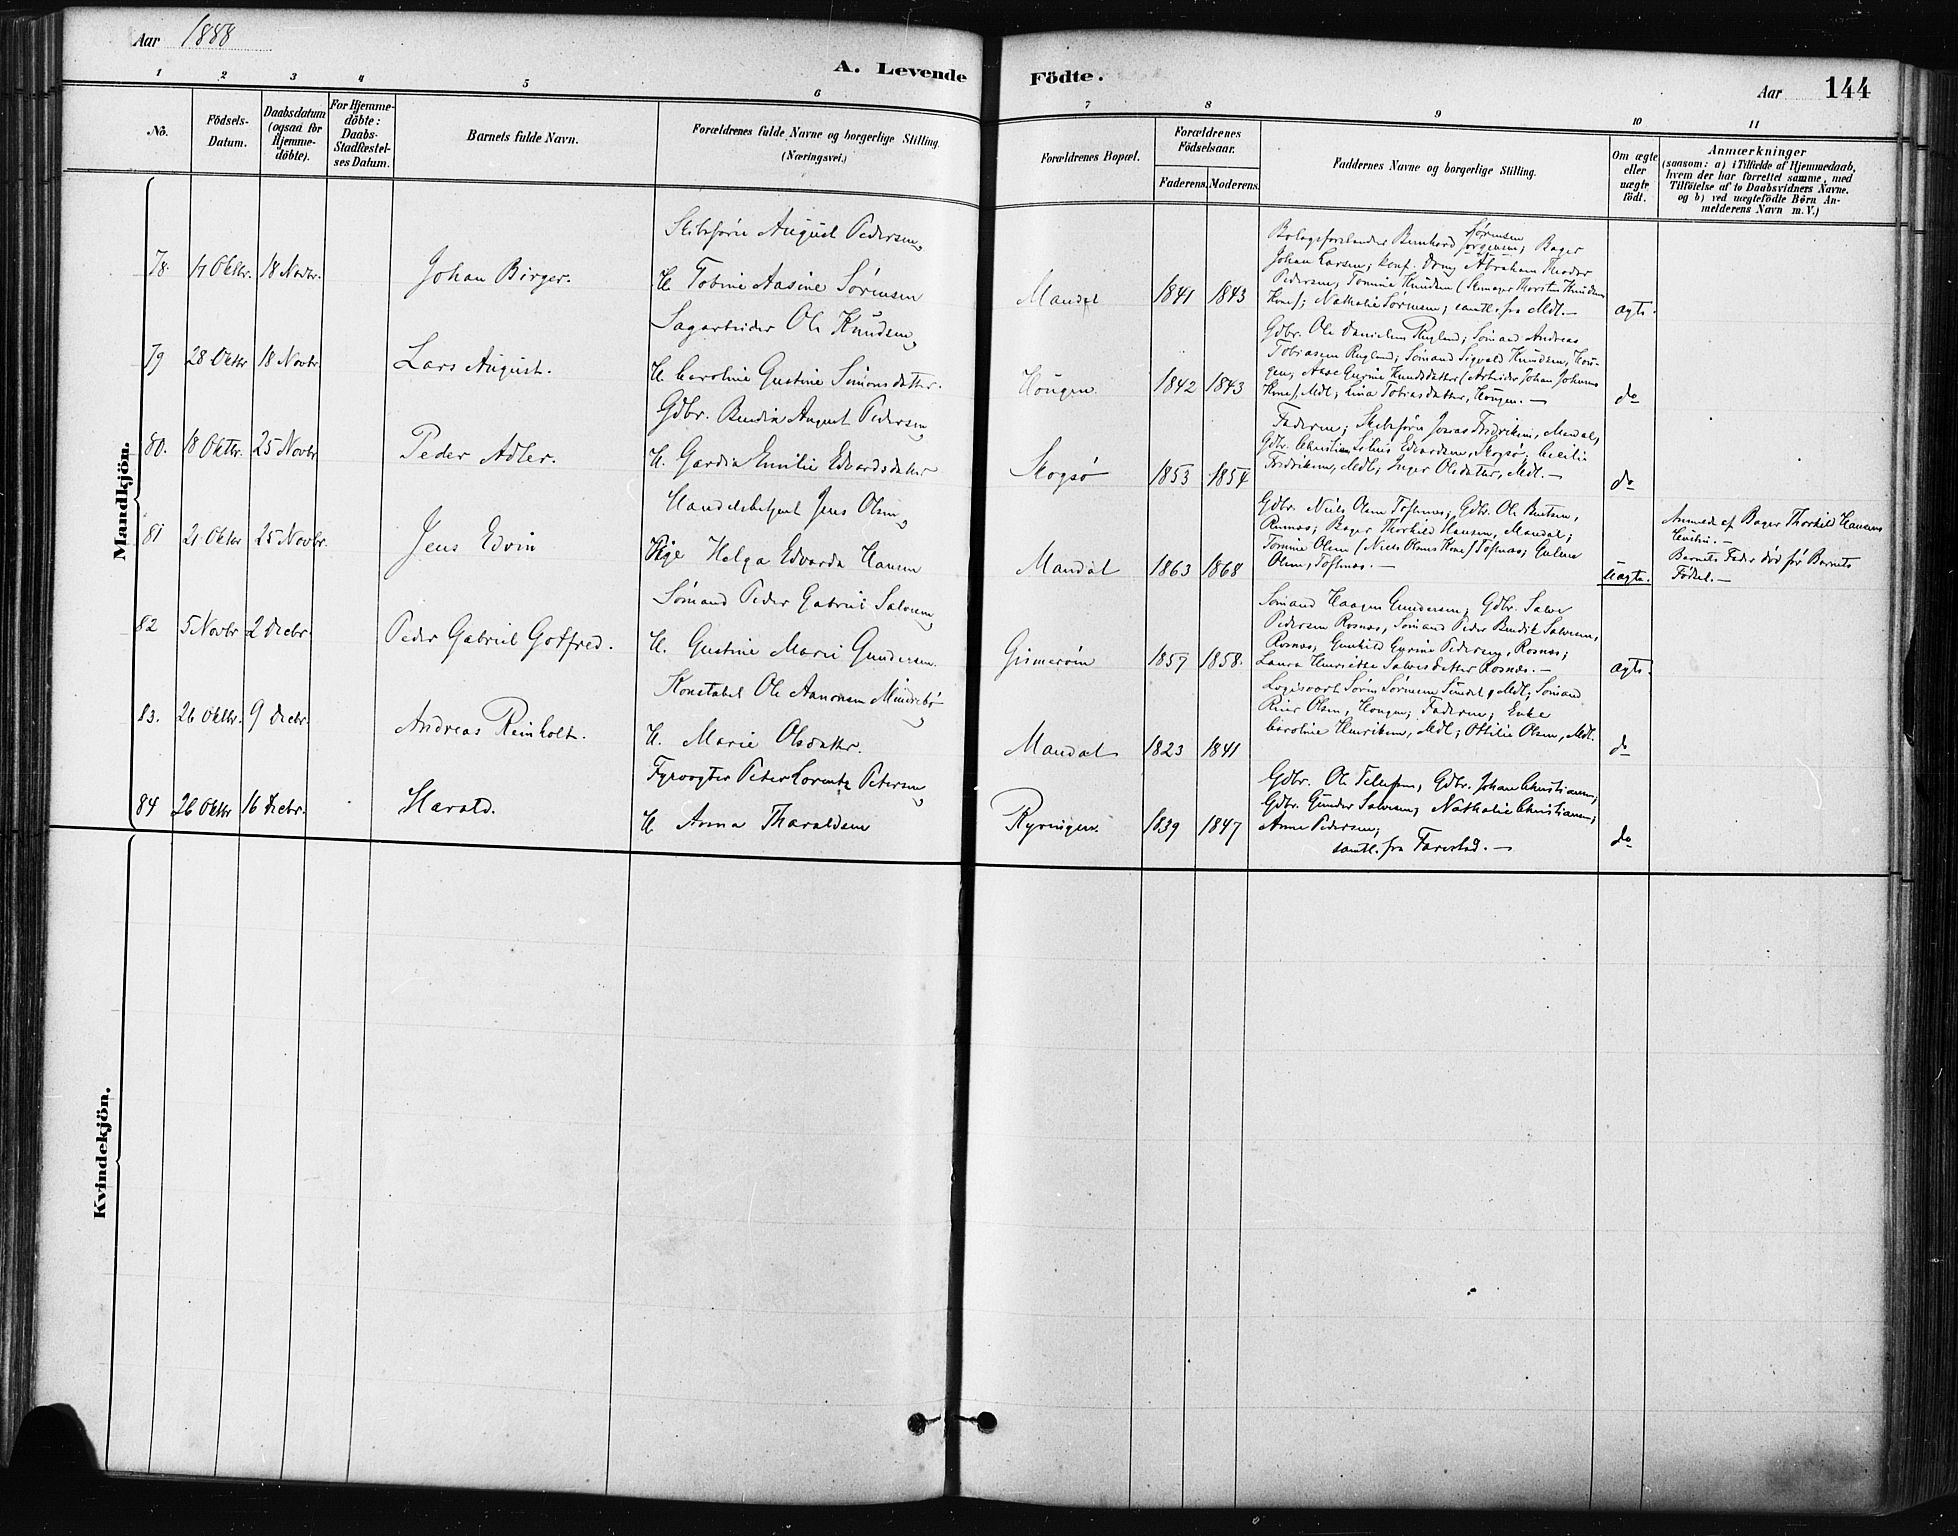 Aar 1888
A. Levende Födte.
Aar 144
1 2 3 4 5 6 7 8 9 10 11
No.
Födsels-Datum.
Daabsdatum (ogsaa for Hjemme-döbte).
For Hjemme-döbte: Daabs-Stadfæstel-ses Datum.
Barnets fulde Navn.
Forældrenes fulde Navne og borgerlige Stilling. (Næringsvei.)
Forældrenes Bopæl.
Forældrenes Födselsaar.
Faderens. Moderens.
Faddernes Navne og borgerlige Stilling.
Om ægte eller uægte födt.
Anmærkninger
(saasom: a) i Tilfælde af Hjemmedaab,
hvem der har forrettet samme, med
Tilföielse af to Daabsvidners Navne.
og b) ved uægtefödte Børn An-
melderens Navn m.V.)
Mandkjön.
78. 17 Oktbr. 18 Novbr. Johan Birger.
Skibsfører August Pedersen,
H. Tobine Aasine Sørensen
Mandal 1841 1843
Bolagsforstander Bernhard Jørgensen Sørensen; Bager
Johan Larsen; konf. Dreng Abraham Theodor
Pedersen, Tomine Knudsen (Thorsten Knudsens
Kone); Nathalie Sørensen; samtl. fra Mdl. —
ægte.
79 28 Oktbr 18 Novbr. Lars August.
Sagarbeider Ole Knudsen,
H. Caroline Gustine Simonsdatter.
Hougen. 1842 1843
Gdbr. Ole Danielsen Ruglund; Sømand Andreas
Tobiassen Ruglund; Sømand Sigvald Knudsen, Hou-
gen, Aase Gurine Knudsdatter (Arbeider Johan Johnsens
Kone), Mdl; Lina Tobiasdatter, Hougen. —
do
80. 18 Oktbr. 25 Novbr Peder Adler.
Gdbr. Bendix August Pedersen,
H. Gardia Emilie Edvardsdatter
Skogsø 1853 1854
Faderen; Skibsfører Jonas Fredriksen, Mandal,
Gdbr. Christian Edvardsen, Skogsø; Cecilie
Fredriksen, Mdl; Inger Olsdatter, Mdl. —
do
81 21 Oktbr 25 Novbr. Jens Edvin
Handelsbetjent Jens Olsen,
Pige Helga Edvarda Hansen
Mandal 1863 1868
Gdbr. Niels Olsen Toftnes; Gdbr. Ole Berntsen,
Rosnæs; Bager Thorkild Hansen, Mandal;
Tomine Olsen (Niels Olsens Kone) Toftnæs;
Olsen, Toftnæs. —
Uægte.
Anmeldt af Bager Thorkild Hansens
Hustru. —
Barnets Fader død før Barnets
Fødsel. —
82 5 Novbr 2 Decbr. Peder Gabriel Gotfred.
Sømand Peder Gabriel Salvesen,
H. Gustine Marie Gundersen.
Gismerøen 1857 1858.
Sømand Haagen Gundersen; Gdbr. Salve
Pedersen Rosnæs, Sømand Peder Bendik Salvesen,
Rosnæs; Gunhild Gurine Pedersen, Rosnæs;
Laura Henriette Salvesdatter Rosnæs. —
ægte.
83. 26 Oktbr. 9 Decbr. Andreas Reinholt.
Konstabel Ole Aanonsen Mindrebø,
H. Marie Olsdatter.
Mandal 1823 1841
Logisvært Søren Sørensen Sundet, Mdl; Sømand
Reier Olsen, Hougen; Faderen; Enke
Caroline Henriksen, Mdl; Ottilie Olsen, Mdl.
do
84 26 Oktbr 16 Decbr. Harald.
Fyrvogter Peter Lorentz Petersen,
H Anna Tharaldsen
Ryvingen. 1839 1847
Gdbr. Ole Tellefsen, Gdbr. Johan Christiansen;
Gdbr. Gunder Salvesen, Nathalie Christiansen;
Anne Pedersen;
samtl. fra Farestad. —
do
Kvindekjön.